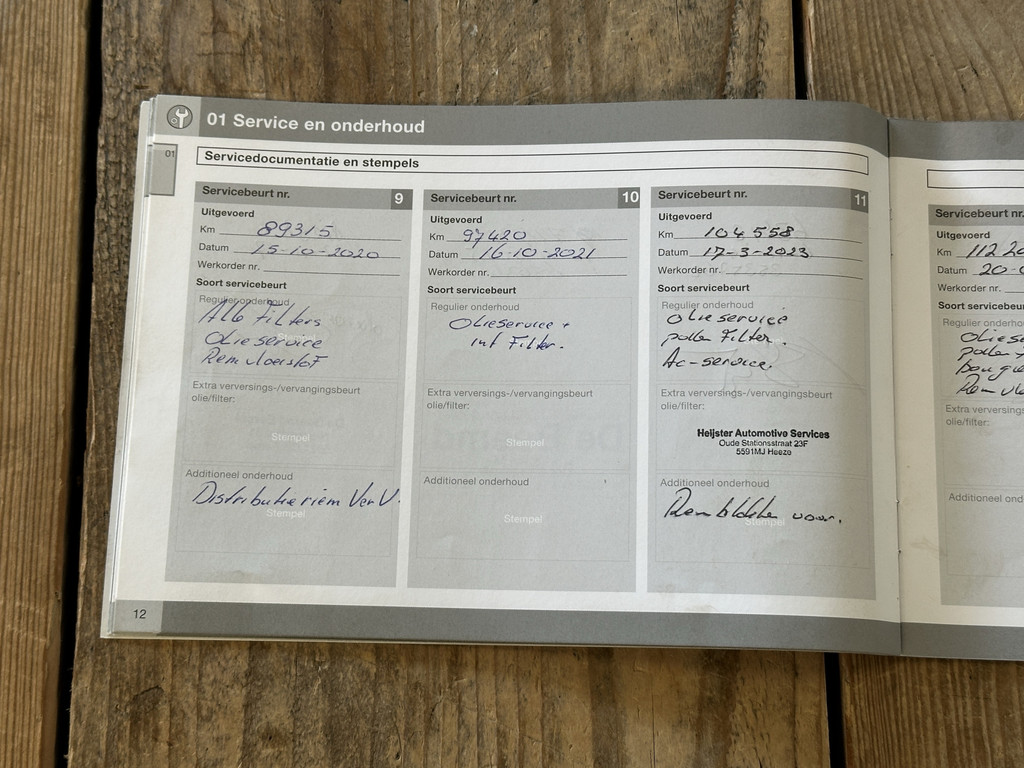 01 Service en onderhoud
01
Servicedocumentatie en stempels
Servicebeurt nr. 9
Uitgevoerd
Km 89315
Datum 15-10-2020
Werkorder nr.
Soort servicebeurt
Regulier onderhoud
Alle Filters
Olieservice
Remvloeistof
Extra verversings-/vervangingsbeurt
olie/filter:
Stempel
Additioneel onderhoud
Distributieriem VerV.
Stempel
Servicebeurt nr. 10
Uitgevoerd
Km 97420
Datum 16-10-2021
Werkorder nr.
Soort servicebeurt
Regulier onderhoud
Olieservice +
int Filter.
Extra verversings-/vervangingsbeurt
olie/filter:
Stempel
Additioneel onderhoud
Stempel
Servicebeurt nr. 11
Uitgevoerd
Km 104558
Datum 17-3-2023
Werkorder nr.
Soort servicebeurt
Regulier onderhoud
Olieservice
pollen Filter.
Ac-service.
Extra verversings-/vervangingsbeurt
olie/filter:
Heijster Automotive Services
Oude Stationsstraat 23F
5591MJ Heeze
Additioneel onderhoud
Remblokken voor.
Stempel
Servicebeurt nr.
Uitgevoerd
Km 112
Datum 20-
Werkorder nr.
Soort servicebeu
Regulier onderho
Olies
pollen
bougie
Remvl
Extra verversings
olie/filter:
Additioneel ond
12